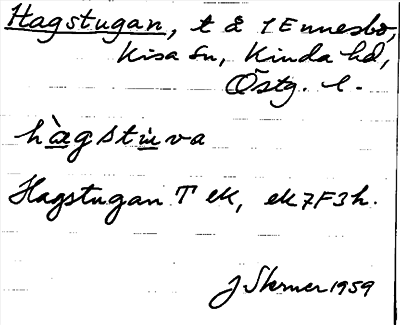 Hagstugan, t & 1 Ennesbo,
Kisa sn, Kinda hd,
Östg. l.
hàgstùva
Hagstugan T ek, ek 7F3h.
1959